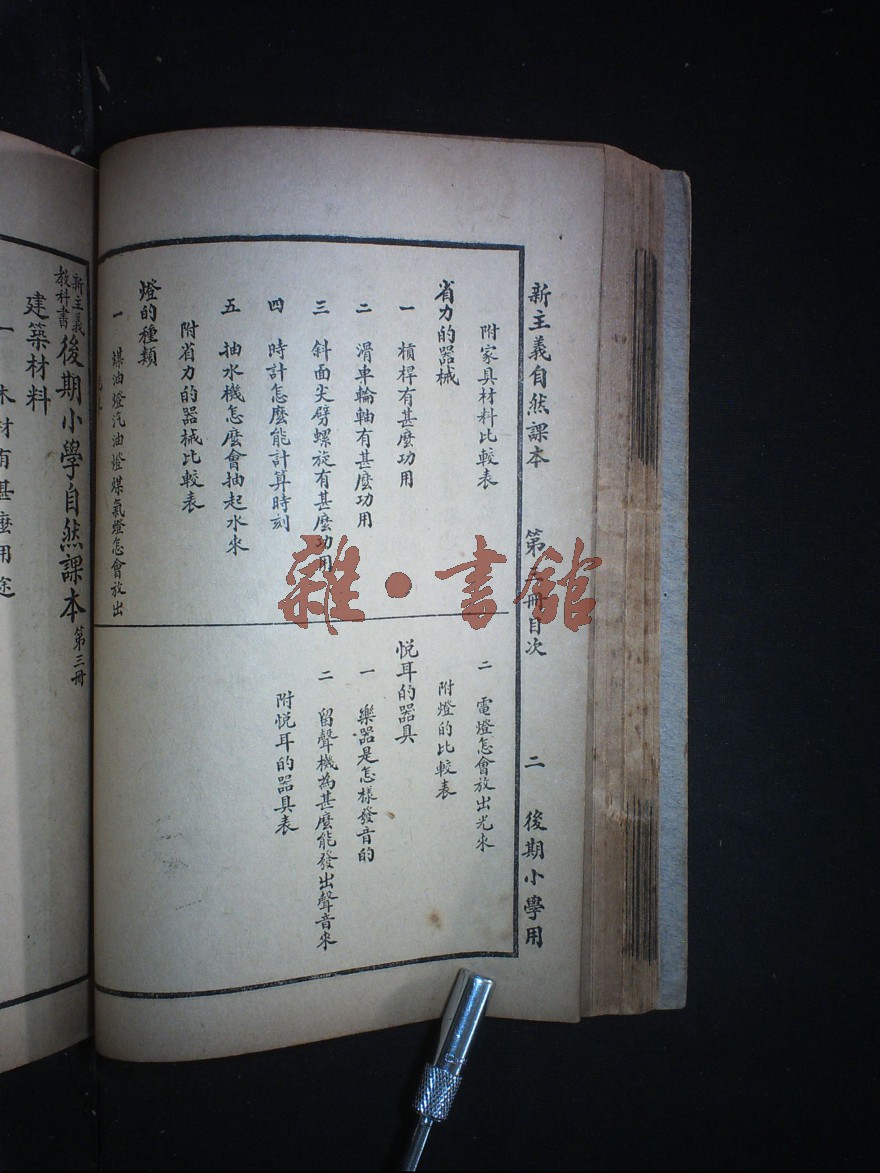 新主義自然課本 第三冊目次 二 後期小學用
附家具材料比較表
省力的器械
一 槓桿有甚麼功用
二 滑車輪軸有甚麼功用
三 斜面尖劈螺旋有甚麼功用
四 時計怎麼能計算時刻
五 抽水機怎麼會抽起水來
附省力的器械比較表
燈的種類
一 煤油燈汽油燈煤氣燈怎會放出
光來
二 電燈怎會放出光來
附燈的比較表
悅耳的器具
一 樂器是怎樣發音的
二 留聲機為甚麼能發出聲音來
附悅耳的器具表
新主義教科書 後期小學自然課本 第三冊
建築材料
一 木材有甚麼用途
雜·書館